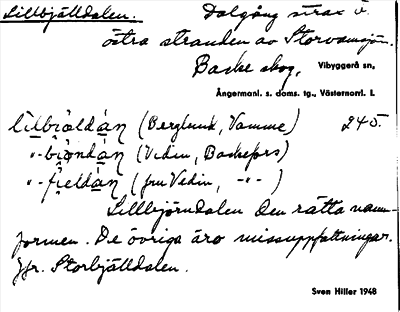 Lillbjälldalen. Dalgång strax ö.
östra stranden av Storvamsjön.
Baske skog, Vibyggerå sn,
Ångermanl. s. doms. tg., Västernorrl. l.
(Berglund, Vamme) 245.
(Vedin, Baskefors)
(fru Vedin, -"-)
Lillbjörndalen den rätta namn-
formen. De övriga äro missuppfattningar.
Jfr. Storbjälldalen.
Sven Hiller 1948